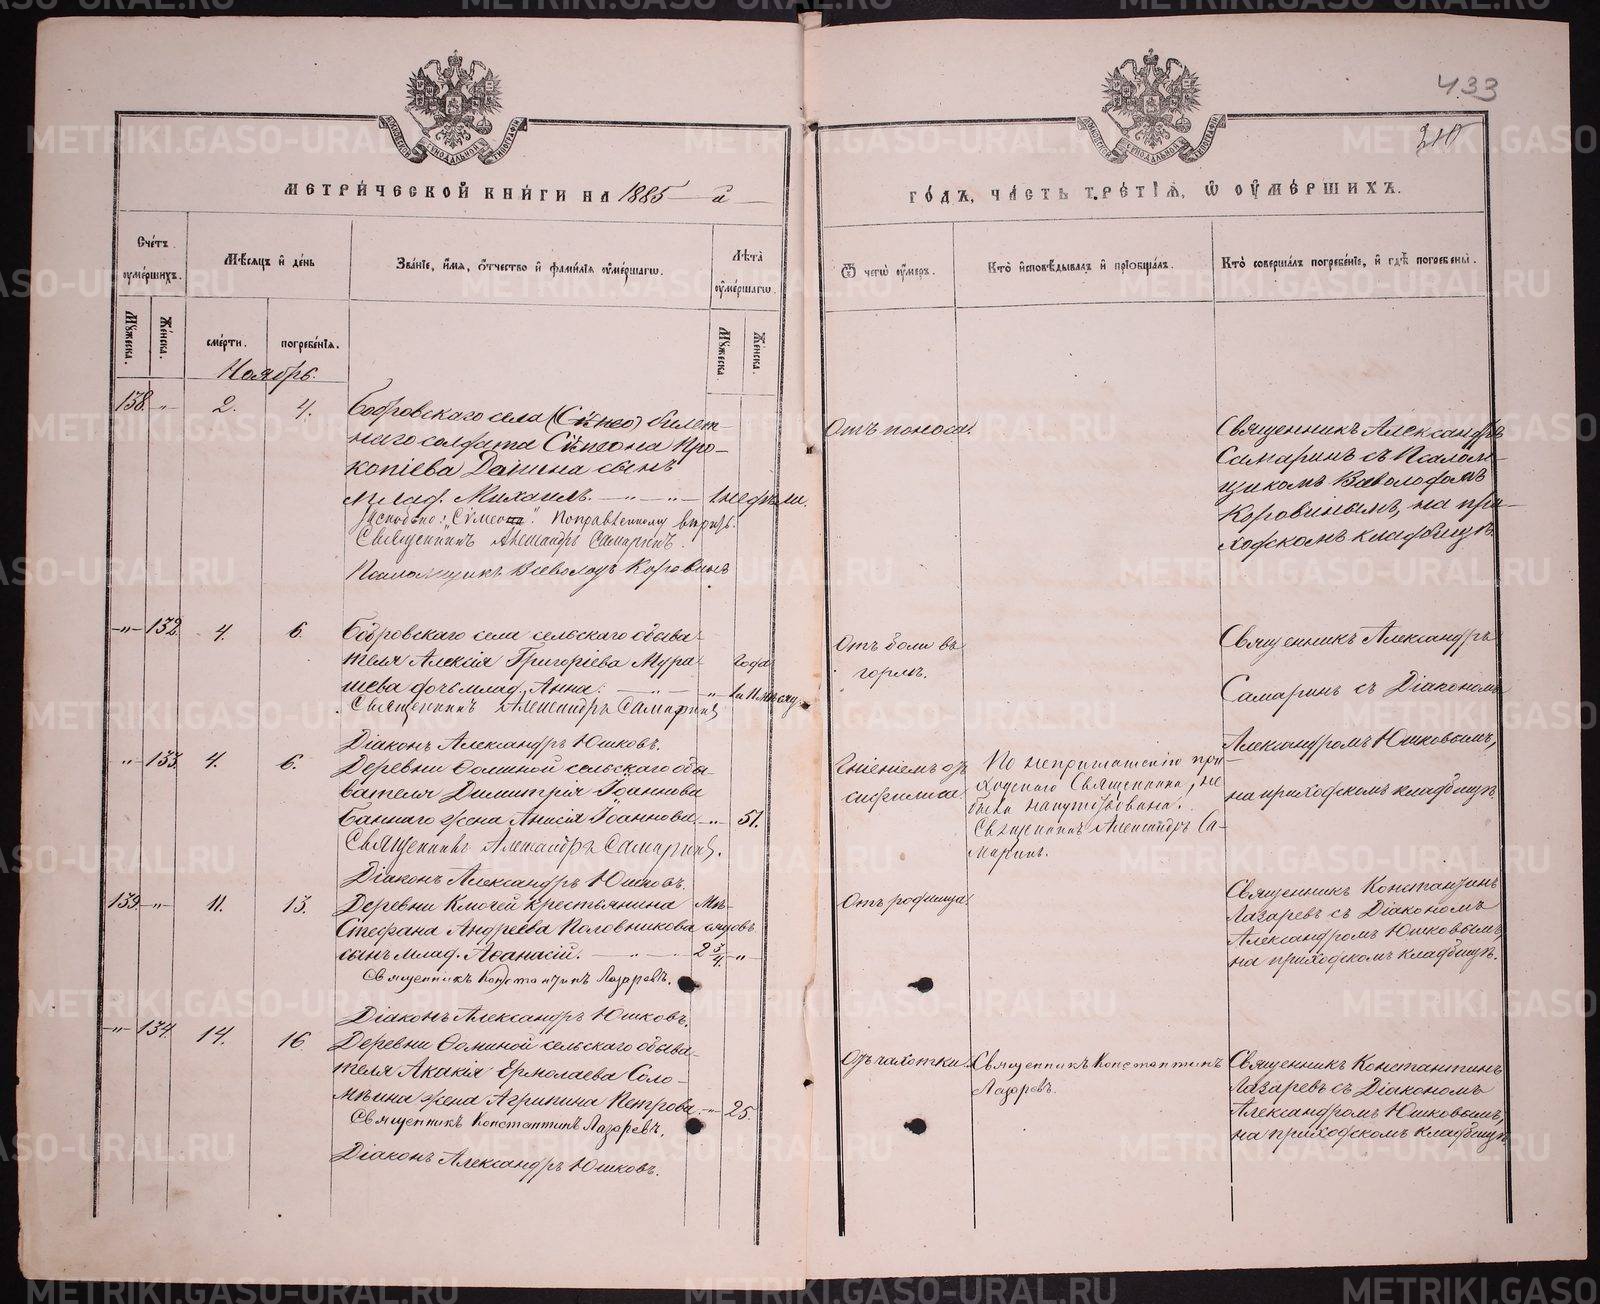 433
210
МЕТРИ́ЧЕСКОЙ КНИ́ГИ НА 1885 й
ГО́ДЪ, ЧА́СТЬ ТРЕ́ТІЯ, Ѡ ОУМЕ́РШИХЪ.
Сче́тъ оуме́ршихъ.
Мѣ́сяцъ и де́нь
Зва́ніе, и́мя, о́тчество и фами́лія оуме́ршагѡ.
Лѣта̀ оуме́ршагѡ
Ѿ чегѡ̀ оу́меръ.
Кто̀ исповѣ́дывалъ и пріобща́лъ.
Кто̀ соверша́лъ погребе́ніе, и гдѣ̀ погребены̀.
Му́жеска.
Же́нска.
сме́рти.
погребе́нія.
Му́жеска.
Же́нска.
Ноябрь.
138 " 2. 4.
Бобровскаго села (Сѵмео) билет-
наго солдата Сѵмеона Про-
копіева Данина сынъ
млад. Михаилъ. — " — " — 1 недѣли.
Священникъ Александръ Самаринъ.
Псаломщикъ Всеволодъ Коровинъ
Отъ поноса.
Священникъ Александръ
Самаринъ съ Псалом-
щикомъ Всеволодомъ
Коровинымъ, на при-
ходскомъ кладбищѣ.
" 132 4. 6.
Бобровскаго села сельскаго обыва-
теля Алексія Григоріева Мура-
шева дочь млад. Анна. — " — " года
1 и 11 мѣсяц.
Священникъ Александръ Самаринъ
Діаконъ Александръ Юшковъ.
Отъ боли въ
горлѣ.
Священникъ Александръ
Самаринъ съ Діакономъ
Александромъ Юшковымъ,
на приходскомъ кладбищѣ.
" 133. 4. 6.
Деревни Ѳоминой сельскаго обы-
вателя Димитрія Іоаннова
Баннаго жена Анисія Іоаннова — " — 51.
Священникъ Александръ Самаринъ.
Діаконъ Александръ Юшковъ.
Гніеніемъ отъ
сифилиса
По неприглашенію при-
ходскаго Священника, не
была напутствована.
Священникъ Александръ Са-
маринъ.
139 " 11. 13.
Деревни Ключей крестьянина Мѣ-
Стефана Андреева Половникова сяцовъ
сынъ млад. Аѳанасій. — " — 2 3/4. "
Священникъ Константинъ Лазаревъ.
Діаконъ Александръ Юшковъ.
Отъ родимца
Священникъ Константинъ
Лазаревъ съ Діакономъ
Александромъ Юшковымъ,
на приходскомъ кладбищѣ.
" 134. 14. 16.
Деревни Ѳоминой сельскаго обыва-
теля Акакія Ермолаева Соло-
мѣина жена Агрипина Петрова. — " 25.
Священникъ Константинъ Лазаревъ.
Діаконъ Александръ Юшковъ.
Отъ чахотки
Священникъ Константинъ
Лазаревъ.
Священникъ Константинъ
Лазаревъ съ Діакономъ
Александромъ Юшковымъ,
на приходскомъ кладбищѣ
METRIKI.GASO-URAL.RU